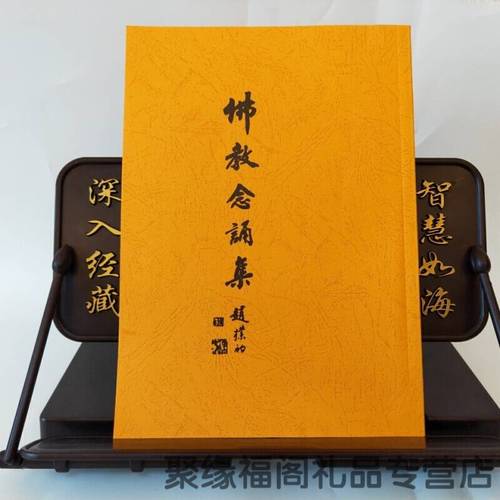 佛教念誦集
趙樸初
深入经藏
智慧如海
聚缘福阁礼品专营店